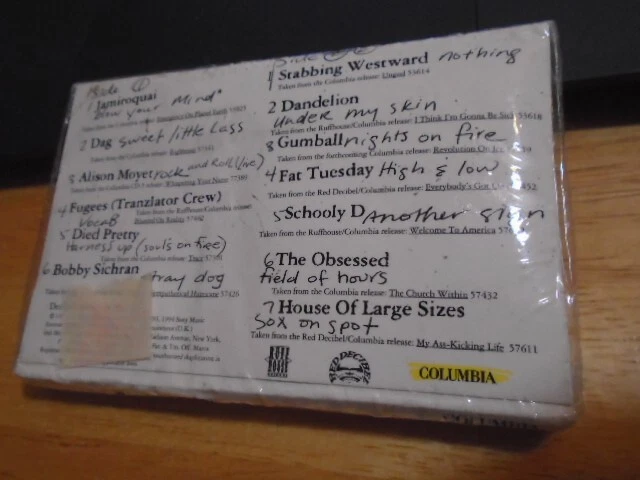 Side ①
1 Jamiroquai
Blow your Mind
Taken from the Columbia release: Emergency On Planet Earth 53825
2 Dag sweet little lass
Taken from the Columbia release: Righteous
3 Alison Moyet rock and Roll (live)
Taken from the Columbia CD5 release: Whispering Your Name
4 Fugees (Tranzlator Crew)
Vocab
Taken from the Ruffhouse/Columbia release: Blunted On Reality
5 Died Pretty
Harness up (souls on fire)
Taken from the Columbia release: Trace
6 Bobby Sichran
stray dog
Sympathetical Hurricane 57426
1994 Sony Music
New York,
Side
1 Stabbing Westward nothing
Taken from the Columbia release: Ungod 53614
2 Dandelion
under my skin
Taken from the Ruffhouse/Columbia release: I Think I'm Gonna Be Sick 53618
3 Gumball nights on fire
Taken from the forthcoming Columbia release: Revolution On Ice
4 Fat Tuesday High & low
Taken from the Red Decibel/Columbia release: Everybody's Got
5 Schooly D Another sign
Taken from the Ruffhouse/Columbia release: Welcome To America
6 The Obsessed
field of hours
Taken from the Columbia release: The Church Within 57432
7 House Of Large Sizes
sox on spot
Taken from the Red Decibel/Columbia release: My Ass-Kicking Life 57611
RUFF HOUSE RECORDS
RED DECIBEL
COLUMBIA